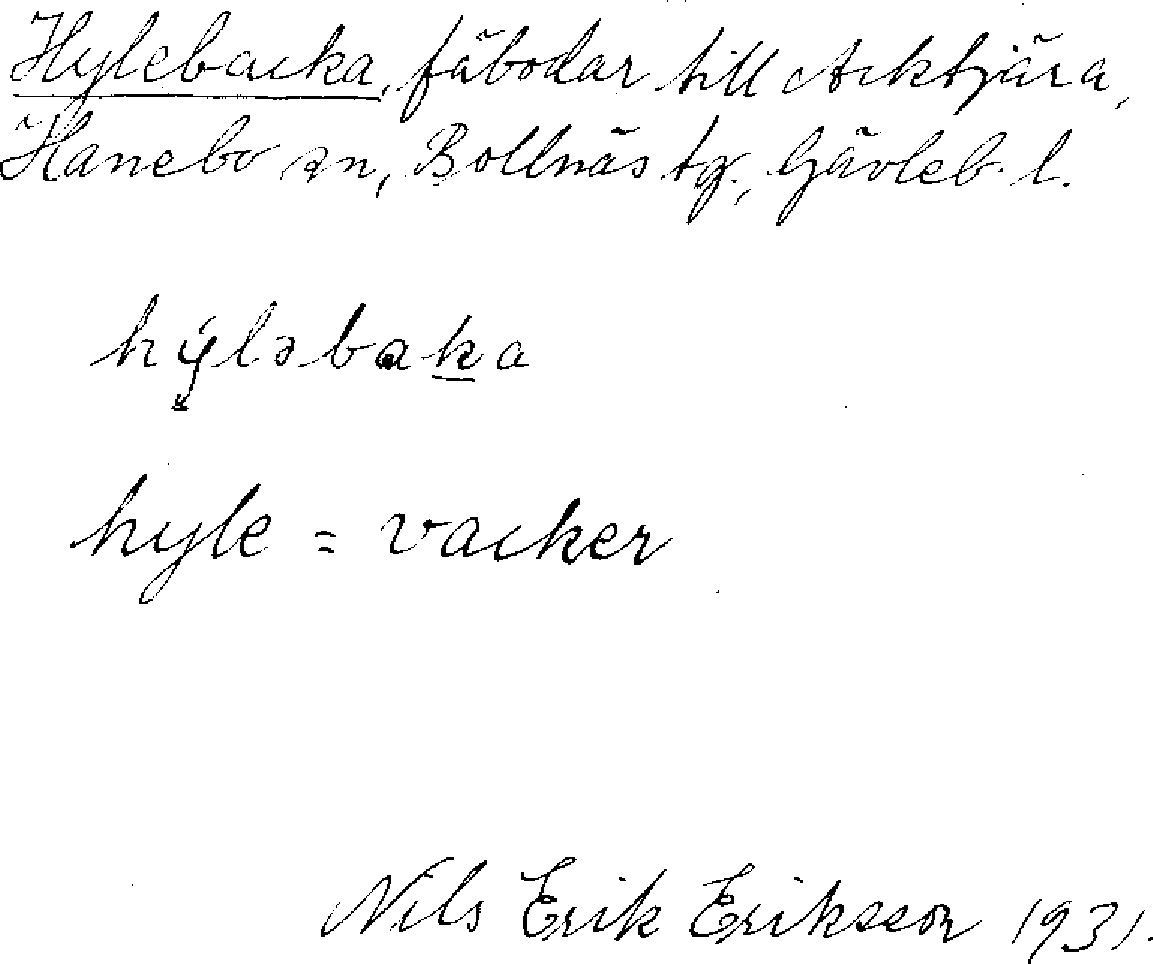 Hylebacka, fäbodar till Acktjära,
Hanebo sn, Bollnäs tg., Gävleb. l.
hý̨ləbaḵa
hyle = vacker
Nils Erik Eriksson 1931.